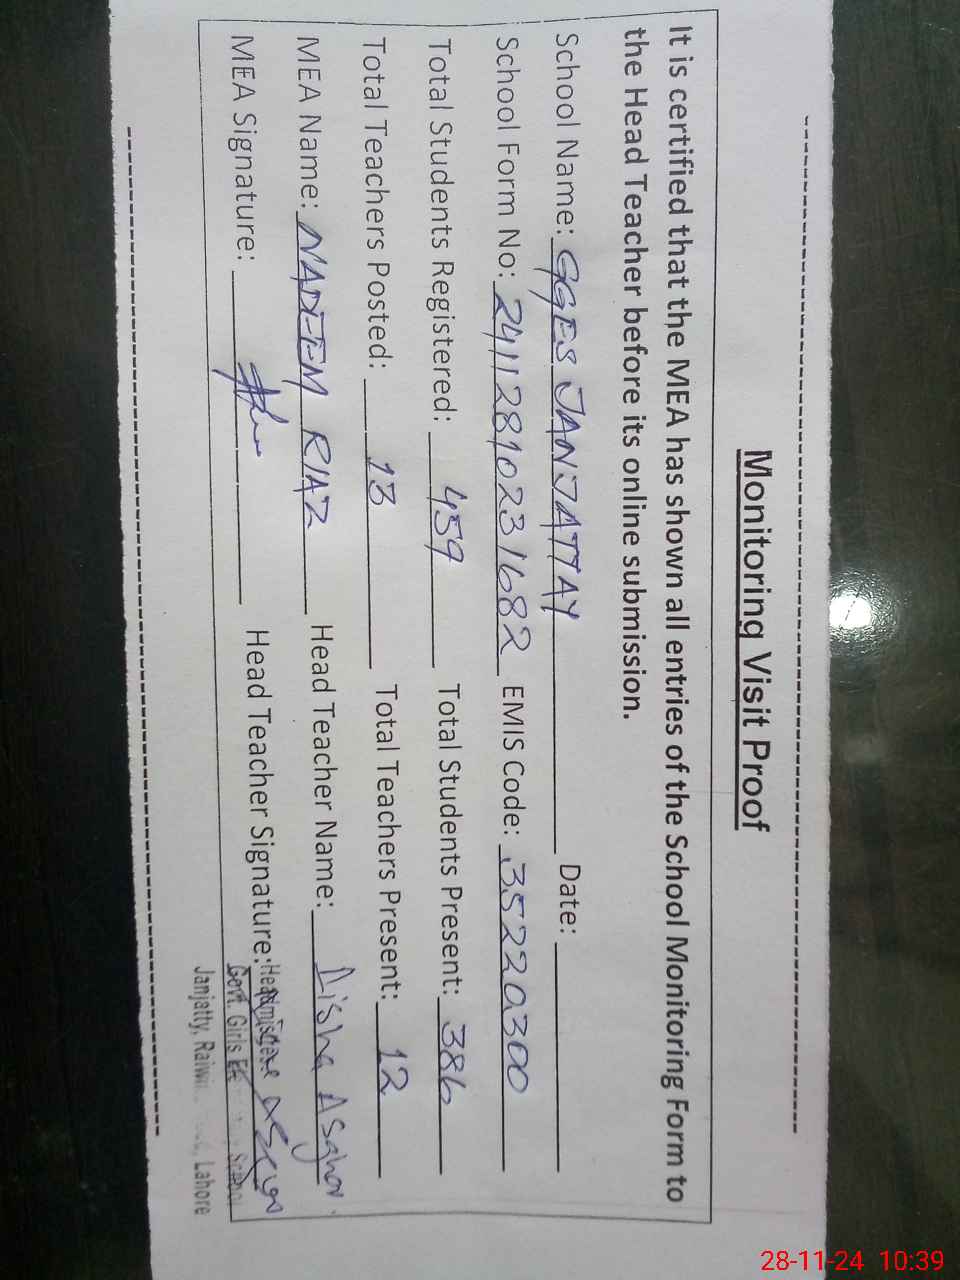 Monitoring Visit Proof
It is certified that the MEA has shown all entries of the School Monitoring Form to
the Head Teacher before its online submission.
School Name: GGES JANJATTAY Date:
School Form No: 2411281023 1682 EMIS Code: 35220300
Total Students Registered: 459 Total Students Present: 386
Total Teachers Posted: 13 Total Teachers Present: 12
MEA Name: NADEEM RIAZ Head Teacher Name: Aisha Asghar
MEA Signature: Head Teacher Signature: Headmistress
Govt. Girls School
Janjatty, Lahore
28-11-24 10:39